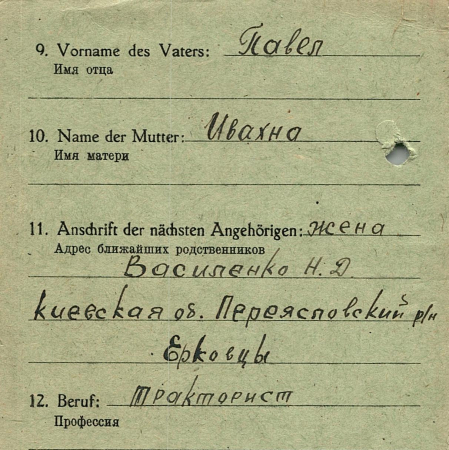 9. Vorname des Vaters: Павел
Имя отца
10. Name der Mutter: Ивахна
Имя матери
11. Anschrift der nächsten Angehörigen: жена
Адрес ближайших родственников
Василенко Н. Д.
Киевская об. Переясловский р/н
Ерковцы
12. Beruf: тракторист
Профессия